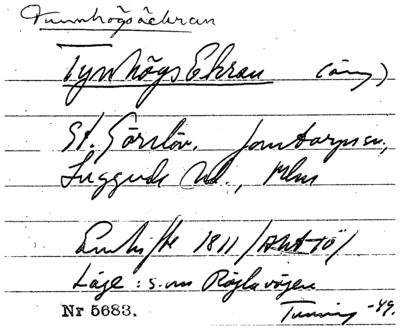 Tunnhögsåckran
Tynhögs Ekran (äng)
St. Görslöv. Jonstorps sn,
Luggude hd., Mlm
Enskifte 1811 /Akt 10/
Läge: s. om Röglavägen
Nr 5683. Tuning -49.